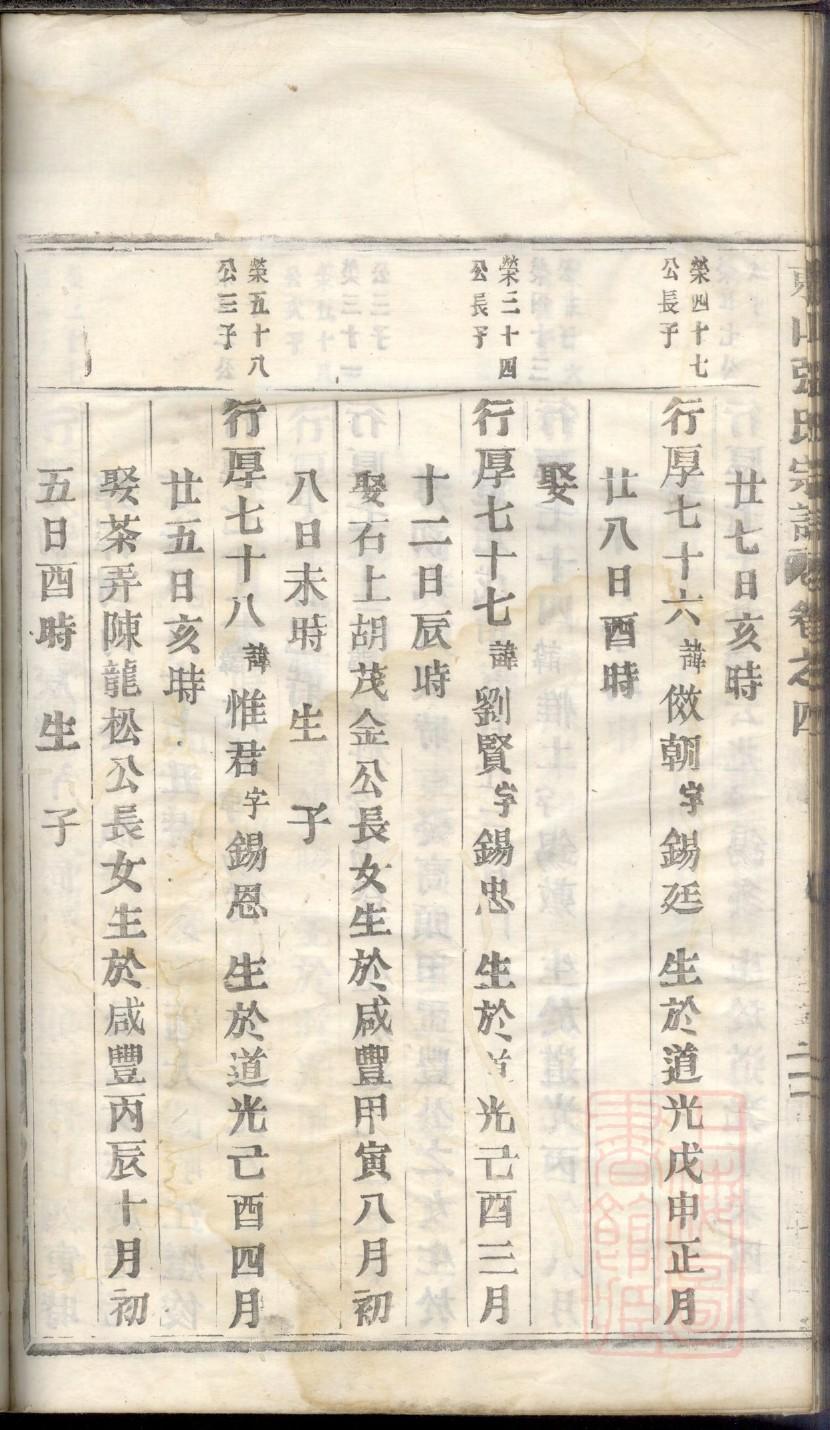 東山張氏宗譜卷之四
廿七日亥時
榮四十七
公長子
行厚七十六諱傚朝字錫廷 生於道光戊申正月
廿八日酉時
娶
榮三十四
公長子
行厚七十七諱劉賢字錫忠 生於道光己酉三月
十二日辰時
娶石上胡茂金公長女生於咸豐甲寅八月初
八日未時 生 子
榮五十八
公三子
行厚七十八諱惟君字錫恩 生於道光己酉四月
廿五日亥時
娶茶弄陳龍松公長女生於咸豐丙辰十月初
五日酉時 生 子